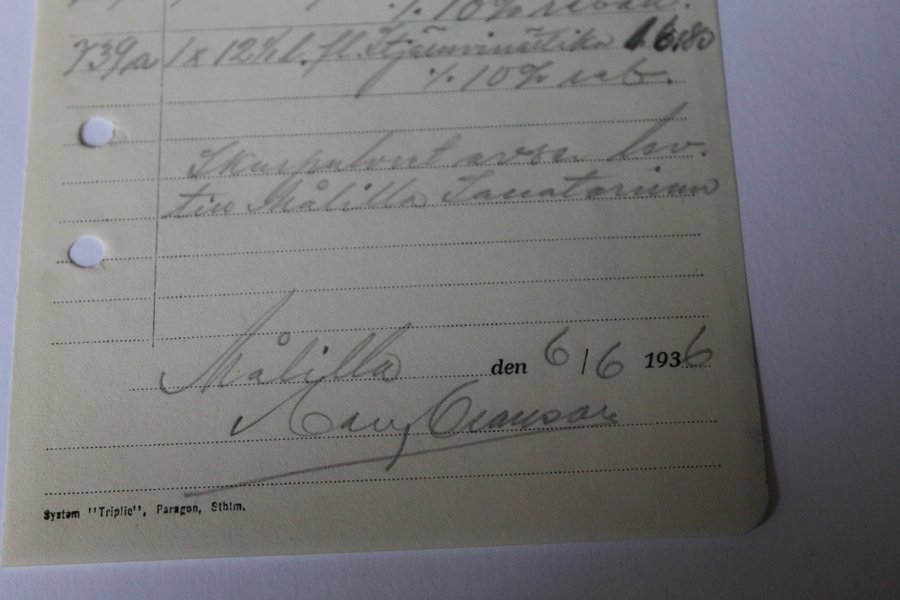 % 10% rabatt.
739a 1 x 12½ l. fl. Stjärnvinättika 16:80
% 10% rab.
Skurpulvret avser lev.
till Målilla Sanatorium
Målilla den 6/6 1936
System "Triplic", Paragon, Sthlm.